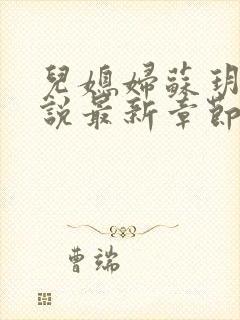 兒媳婦蘇玥
說最新章節
曹端